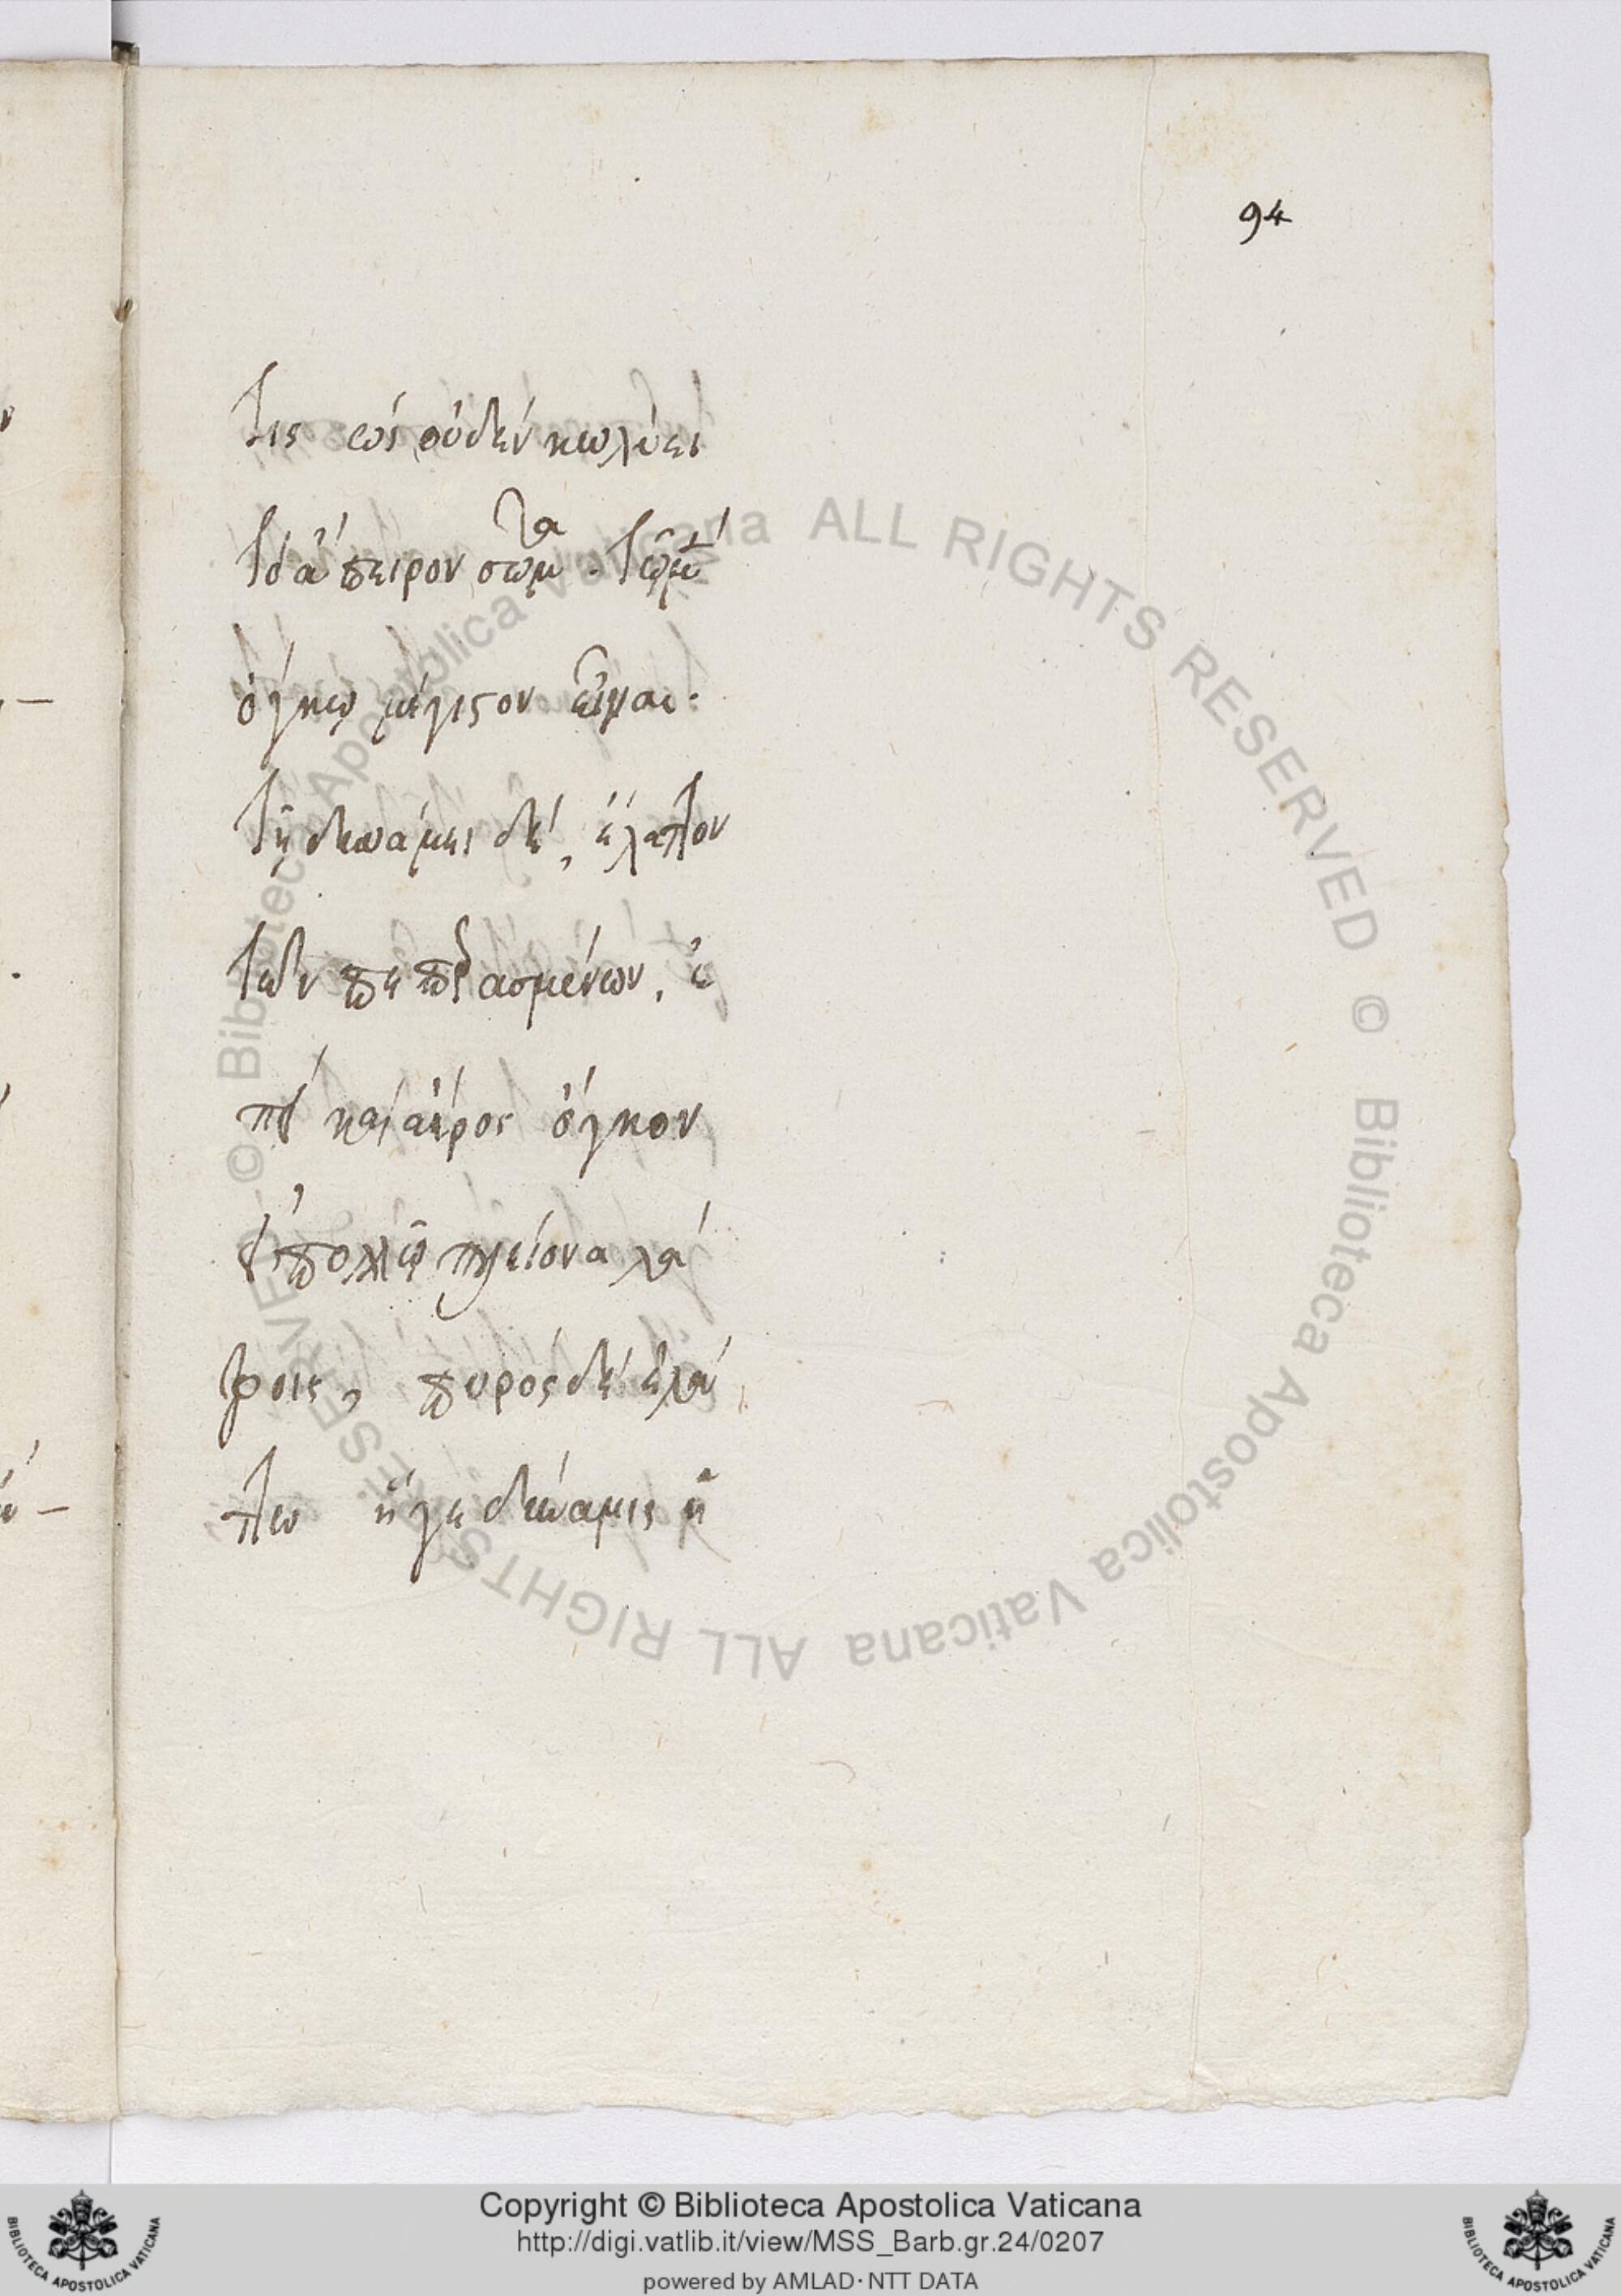 94
τις ὡς οὐδὲν κωλύει
τὸ ἄπειρον σῶμα τῷ μὲν
ὄγκῳ μέγιστον εἶναι·
τῇ δυνάμει δὲ, ἔλαττον
τῶν πεπερασμένων, ἐ
πεὶ καὶ ἀέρος ὄγκον
εἰ πολλῷ πλείονα λά
βοις, πυρὸς δὲ ἐλά
ττω ἥ γε δύναμις ἡ
© Biblioteca Apostolica Vaticana ALL RIGHTS RESERVED © Biblioteca Apostolica Vaticana ALL RIGHTS RESERVED
BIBLIOTECA APOSTOLICA VATICANA
Copyright © Biblioteca Apostolica Vaticana
http://digi.vatlib.it/view/MSS_Barb.gr.24/0207
powered by AMLAD · NTT DATA
BIBLIOTECA APOSTOLICA VATICANA